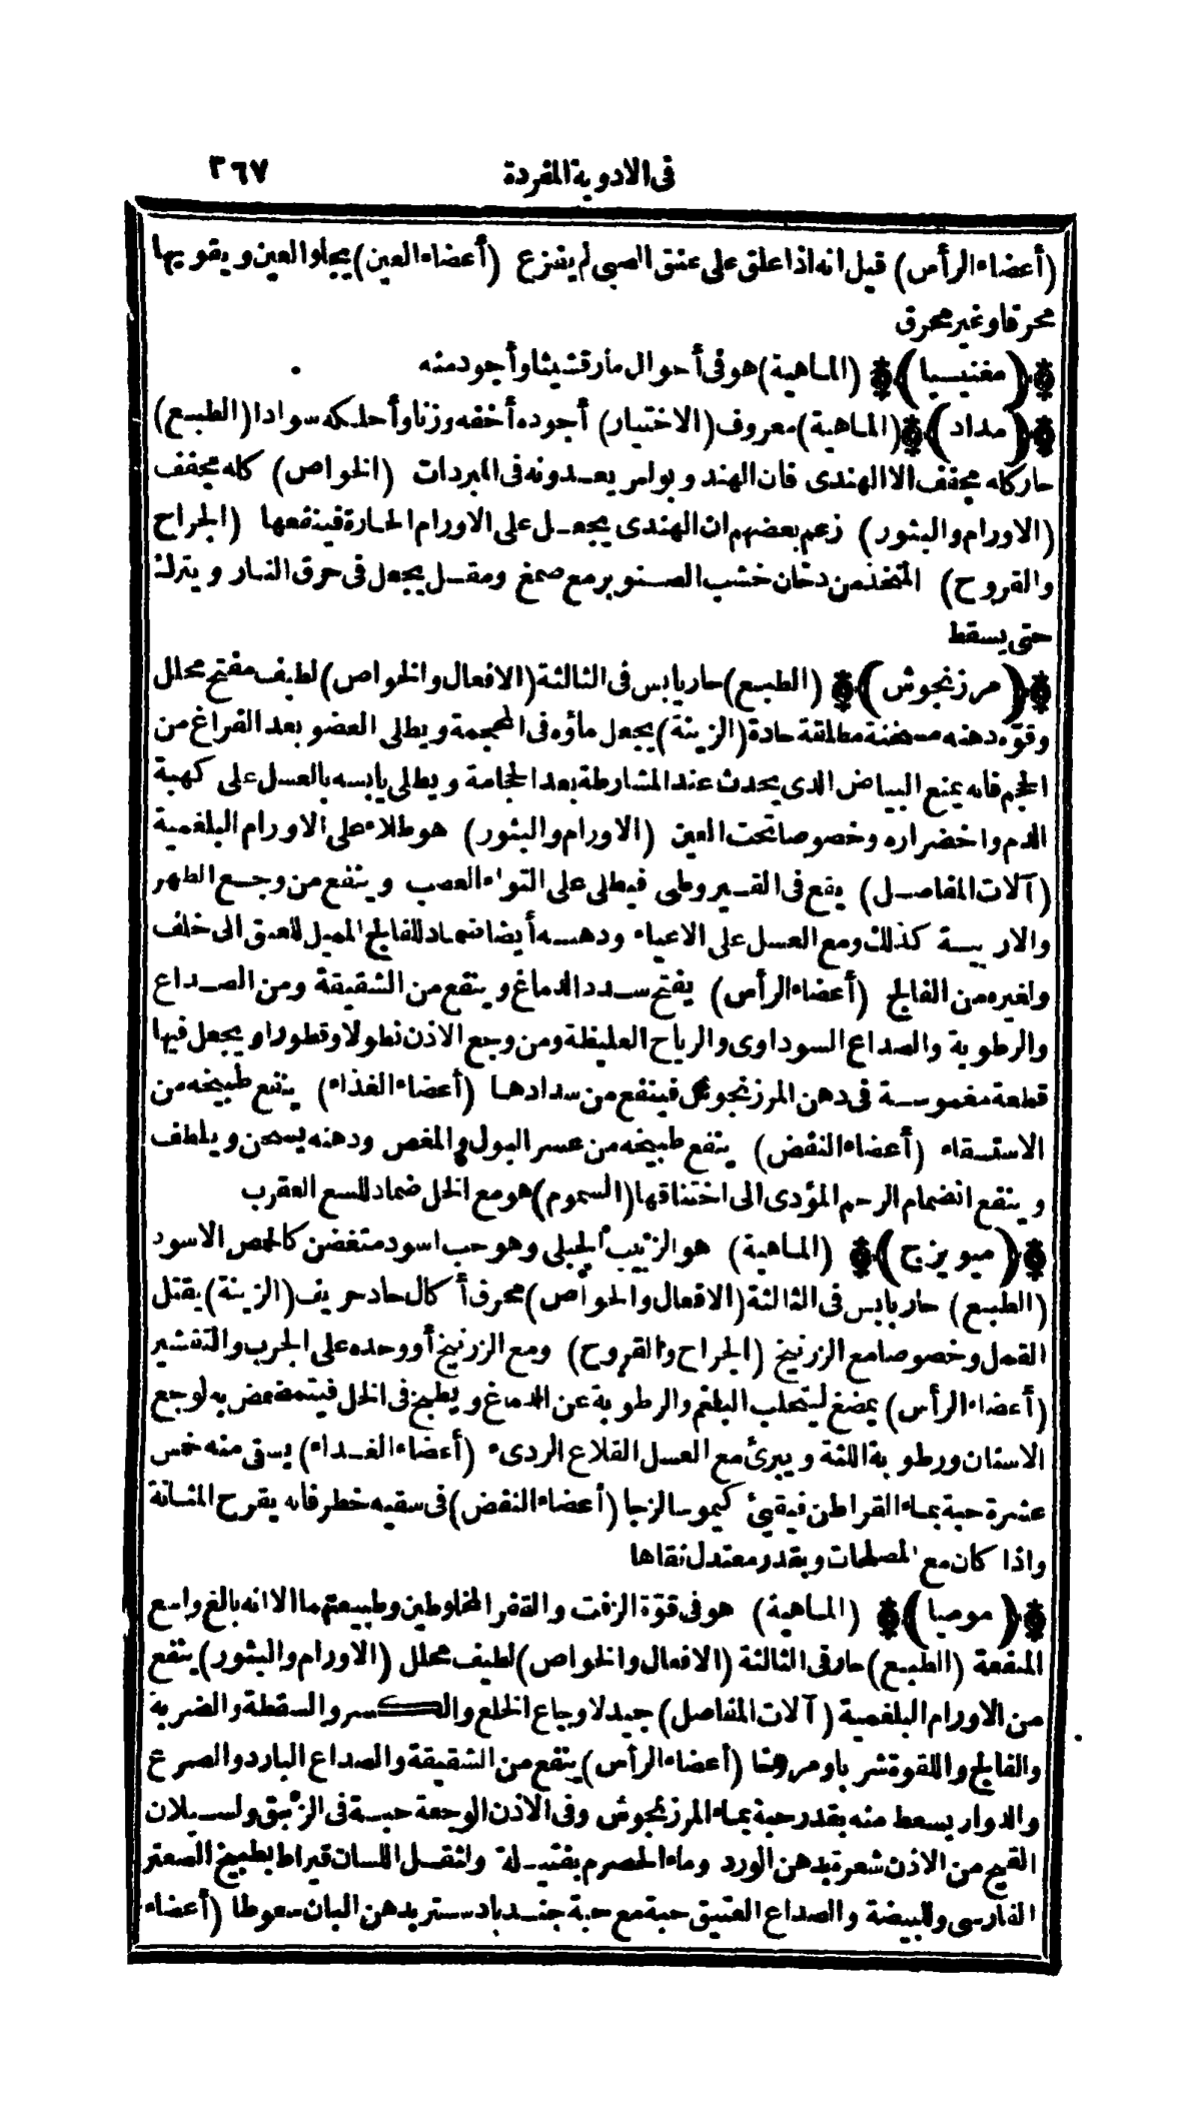 فى الادوية المفردة ٣٦٧
(أعضاء الرأس) قيل انه اذا علق على عنق الصبى لم يفزع (أعضاء العين) يجلو العين ويقويها
محرقا وغير محرق
(مغنيسيا) (الماهية) هو فى أحوال مارقشيثا وأجود منه
(مداد) (الماهية) معروف (الاختيار) أجوده أخفه وزنا وأحلكه سوادا (الطبع)
حار كله مجفف الا الهندى فان الهند وبولس يعدونه فى المبردات (الخواص) كله مجفف
(الاورام والبثور) زعم بعضهم ان الهندى يجعل على الاورام الحارة فينفعها (الجراح
والقروح) المتخذ من دخان خشب الصنوبر مع صمغ ومقل يجعل فى حرق النار ويترك
حتى يسقط
(مرزنجوش) (الطبع) حار يابس فى الثالثة (الافعال والخواص) لطيف مفتح محلل
وقوّة دهنه مسخنة ملطفة حادة (الزينة) يجعل ماؤه فى المحجمة ويطلى العضو بعد الفراغ من
الحجم فانه يمنع البياض الذى يحدث عند المشارطة بعد الحجامة ويطلى يابسه بالعسل على كهبة
الدم واخضراره وخصوصا تحت العين (الاورام والبثور) هو طلاء على الاورام البلغمية
(آلات المفاصل) يقع فى القيروطى فيطلى على التواء العصب وينفع من وجع الظهر
والاربية كذلك ومع العسل على الاعياء ودهنه أيضا ضماد للفالج المميل للعنق الى خلف
ولغيره من الفالج (أعضاء الرأس) يفتح سدد الدماغ وينفع من الشقيقة ومن الصداع
والرطوبة والصداع السوداوى والرياح الغليظة ومن وجع الاذن نطولا وقطورا ويجعل فيها
قطعة مغموسة فى دهن المرزنجوش فينفع من سدادها (أعضاء الغذاء) ينفع طبيخه من
الاستسقاء (أعضاء النفض) ينفع طبيخه من عسر البول والمغص ودهنه يسخن ويلطف
وينفع انضمام الرحم المؤدى الى اختناقها (السموم) هو مع الخل ضماد للسع العقرب
(ميويزج) (الماهية) هو الزبيب الجبلى وهو حب اسود متغضن كالحمص الاسود
(الطبع) حار يابس فى الثالثة (الافعال والخواص) محرق أكال حاد حريف (الزينة) يقتل
القمل وخصوصا مع الزرنيخ (الجراح والقروح) ومع الزرنيخ أو وحده على الجرب والتقشير
(أعضاء الرأس) يمضغ ليتحلب البلغم والرطوبة عن الدماغ ويطبخ فى الخل فيتمضمض به لوجع
الاسنان ورطوبة اللثة ويبرئ مع العسل القلاع الردىء (أعضاء الغذاء) يسقى منه خمس
عشرة حبة بماء القراطن فيقيئ كيموسا لزجا (أعضاء النفض) فى سقيه خطر فانه يقرح المثانة
واذا كان مع المصلحات وبقدر معتدل نقاها
(موميا) (الماهية) هو فى قوّة الزفت والقفر المخلوطين وطبيعتهما الا انه بالغ واسع
المنفعة (الطبع) حار فى الثالثة (الافعال والخواص) لطيف محلل (الاورام والبثور) ينفع
من الاورام البلغمية (آلات المفاصل) جيد لاوجاع الخلع والكسر والسقطة والضربة
والفالج واللقوة شربا ومروخا (أعضاء الرأس) ينفع من الشقيقة والصداع البارد والصرع
والدوار يسعط منه بقدر حبة بماء المرزنجوش وفى الاذن الوجعة حبة فى الزنبق ولسيلان
القيح من الاذن شعرة بدهن الورد وماء الحصرم بفتيلة ولثقل اللسان قيراط بطبيخ الصعتر
الفارسى وللبيضة والصداع العتيق حبة مع حبة جندبادستر بدهن البان سعوطا (أعضاء